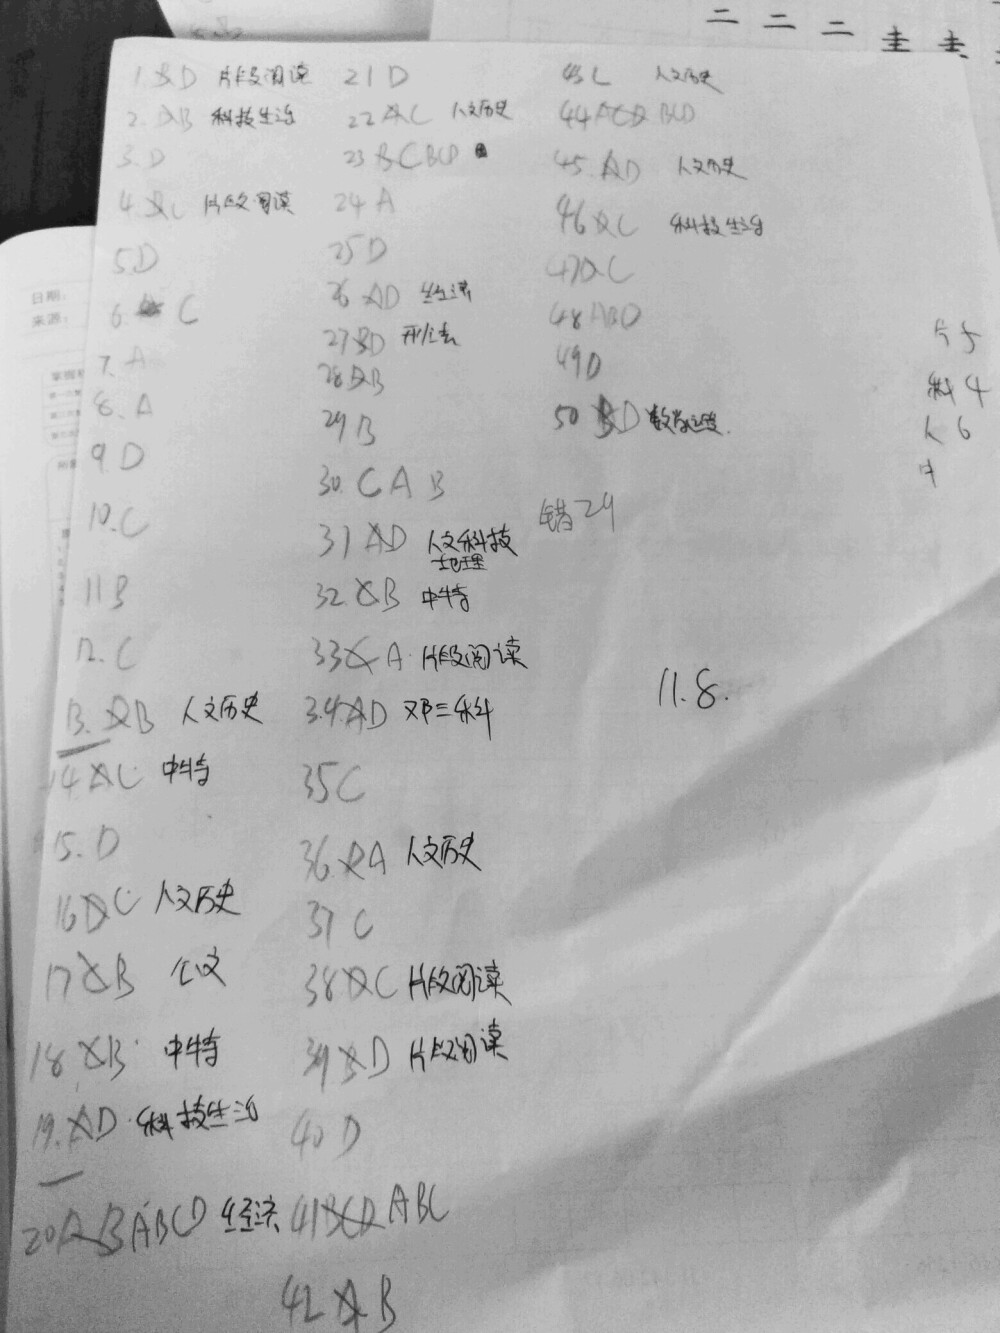 1. BD 片段阅读
2. AB 科技生活
3. D
4. C 片段阅读
5. D
6. C
7. A
8. A
9. D
10. C
11 B
12. C
13. AB 人文历史
14 AC 中特
15. D
16 DC 人文历史
17 B 公文
18 B 中特
19. AD 科技生活
20 AB ABCD 经济
21 D
22 AC 人文历史
23 BC BCD
24 A
25 D
26 AD 经济
27 BD 刑法
28 AB
29 B
30. C A B
31 AD 人文科技
地理
32. B 中特
33 C A 片段阅读
34 AD 邓三科
35 C
36. A 人文历史
37 C
38 C 片段阅读
39 D 片段阅读
40 D
41 BCD ABC
42 A B
43 C 人文历史
44 ACD BCD
45. AD 人文历史
46 C 科技生活
47 C
48 ABD
49 D
50 BD 数学运算.
错24
11.8.
片5
科4
人6
中
日期:
来源: